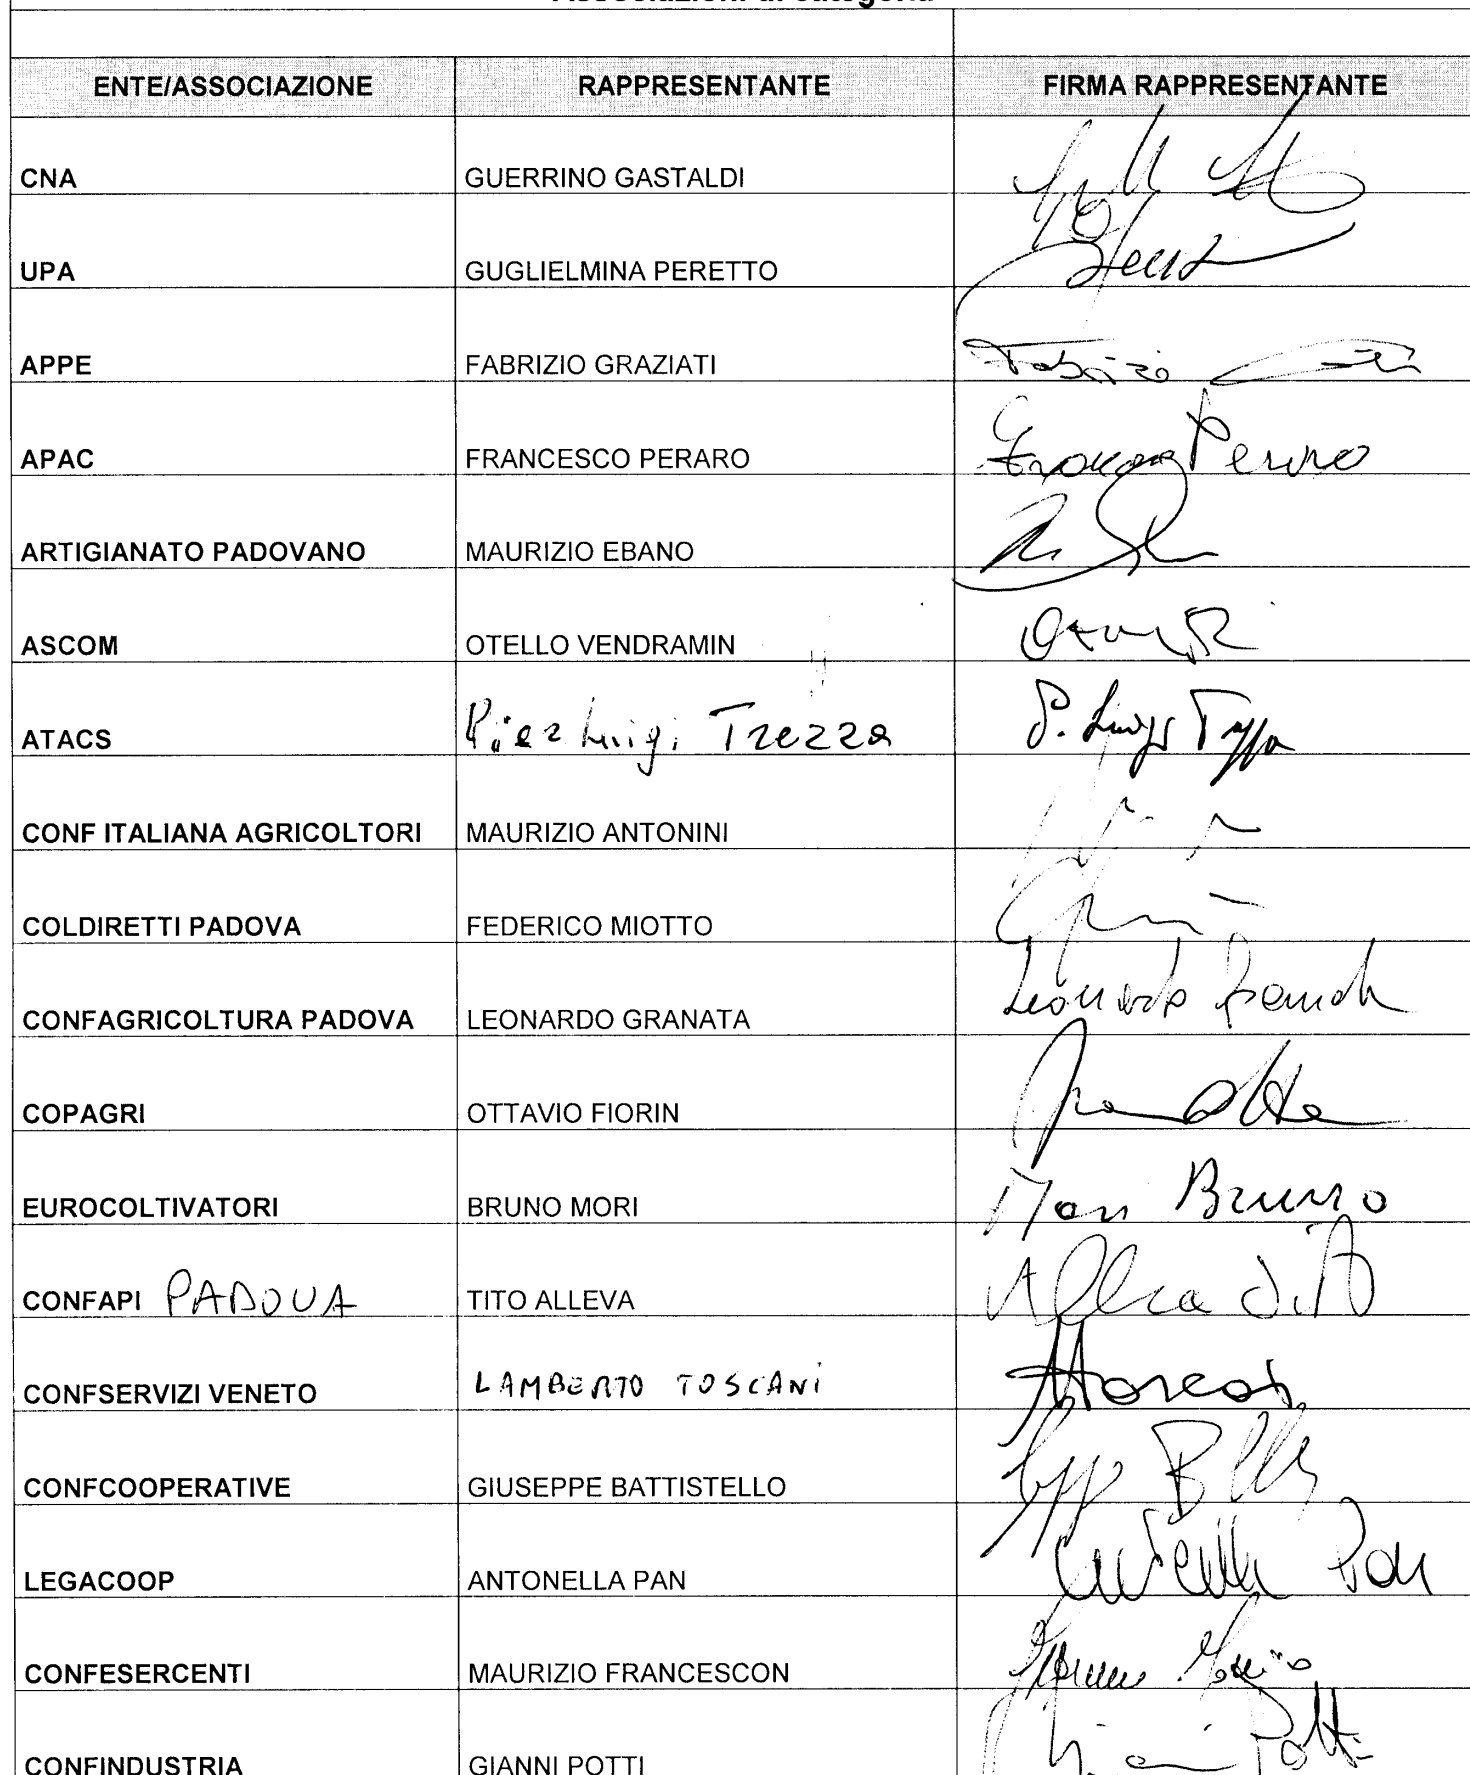 Associazioni di categoria
ENTE/ASSOCIAZIONE RAPPRESENTANTE FIRMA RAPPRESENTANTE
CNA GUERRINO GASTALDI
UPA GUGLIELMINA PERETTO
APPE FABRIZIO GRAZIATI Fabrizio
APAC FRANCESCO PERARO
ARTIGIANATO PADOVANO MAURIZIO EBANO
ASCOM OTELLO VENDRAMIN
ATACS Pier Luigi Trezza P. Luigi
CONF ITALIANA AGRICOLTORI MAURIZIO ANTONINI
COLDIRETTI PADOVA FEDERICO MIOTTO
CONFAGRICOLTURA PADOVA LEONARDO GRANATA Leonardo
COPAGRI OTTAVIO FIORIN
EUROCOLTIVATORI BRUNO MORI Mori Bruno
CONFAPI PADOVA TITO ALLEVA Alleva Tito
CONFSERVIZI VENETO LAMBERTO TOSCANI
CONFCOOPERATIVE GIUSEPPE BATTISTELLO
LEGACOOP ANTONELLA PAN Antonella Pan
CONFESERCENTI MAURIZIO FRANCESCON
CONFINDUSTRIA GIANNI POTTI Gianni Potti